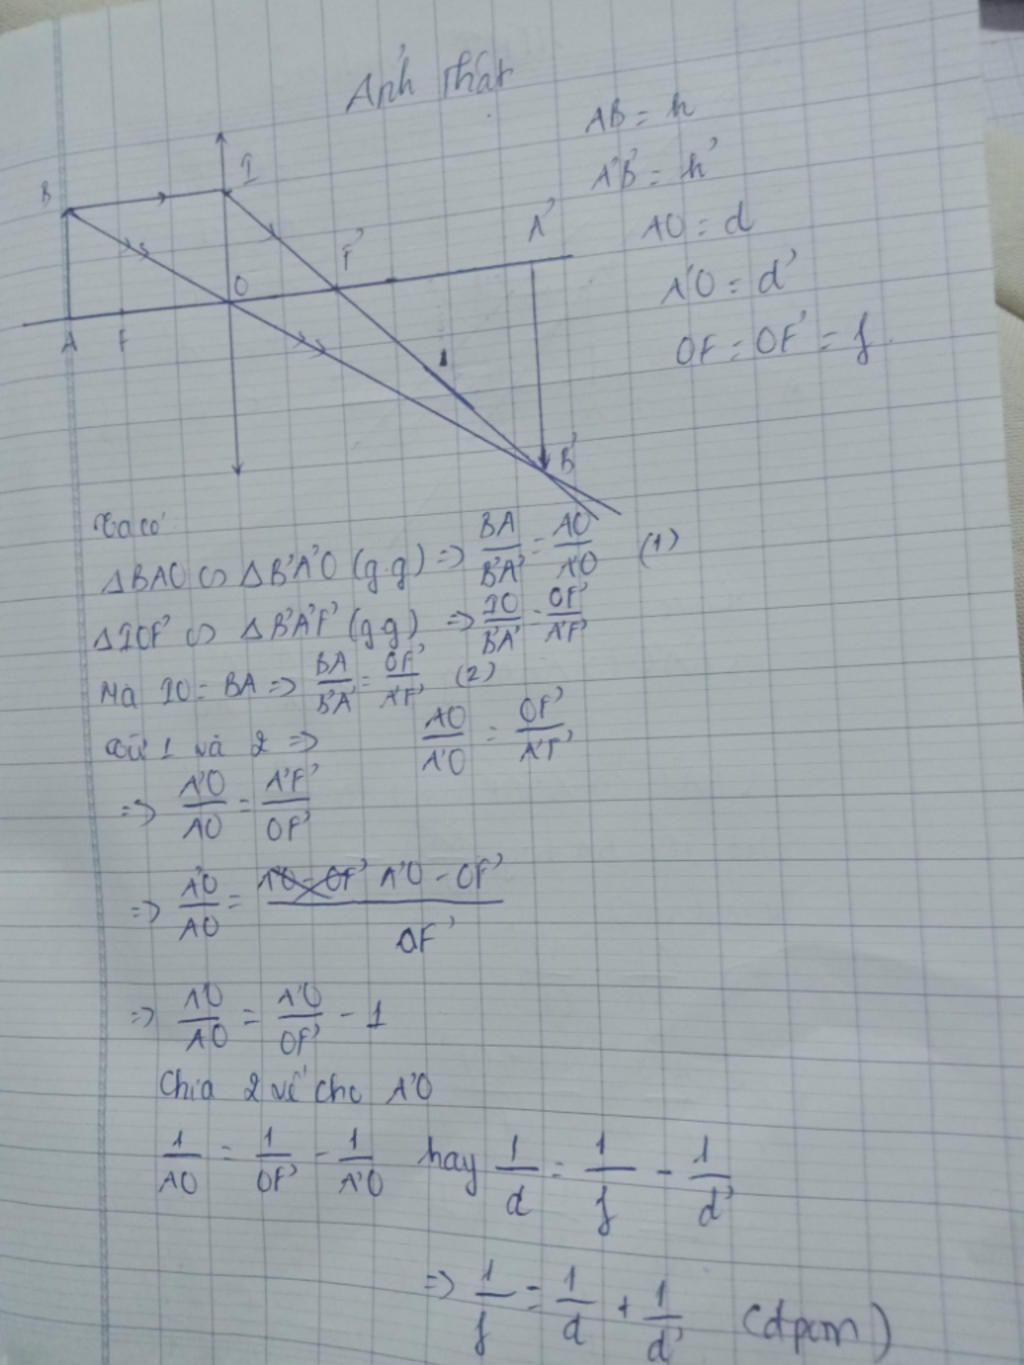 Ảnh thật
AB = h
A'B' = h'
AO = d
A'O = d'
OF = OF' = f
B
I
F'
A'
O
A
F
B'
Ta có
ΔBAO ∽ ΔB'A'O (g.g) => BA/B'A' = AO/A'O (1)
ΔIOF' ∽ ΔB'A'F' (g.g) => IO/B'A' = OF'/A'F'
Mà IO = BA => BA/B'A' = OF'/A'F' (2)
Từ 1 và 2 => AO/A'O = OF'/A'F'
=> A'O/AO = A'F'/OF'
=> A'O/AO = A'O - OF'/OF'
=> A'O/AO = A'O/OF' - 1
Chia 2 vế cho A'O
1/AO = 1/OF' - 1/A'O hay 1/d = 1/f - 1/d'
=> 1/f = 1/d + 1/d' (đpcm)